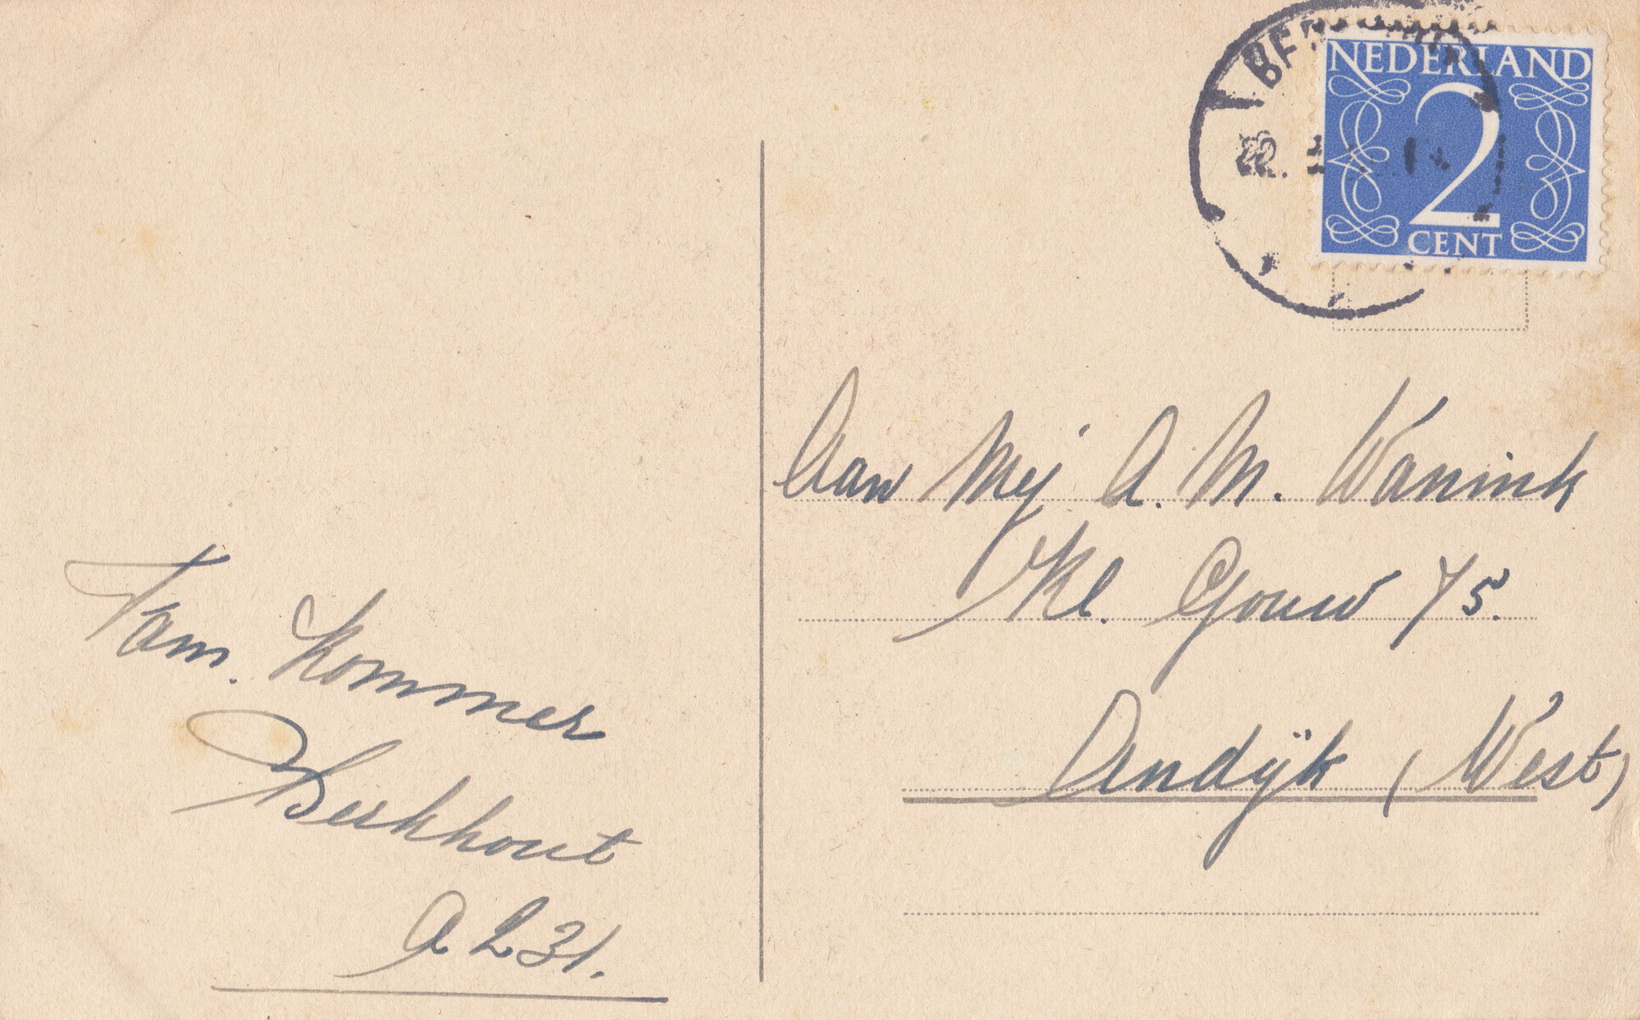 NEDERLAND
2
CENT
Aan Mej A. M. Wanink
Kl. Gouw 75.
Andijk (West)
Fam. Kommer
Berkhout
A 231.